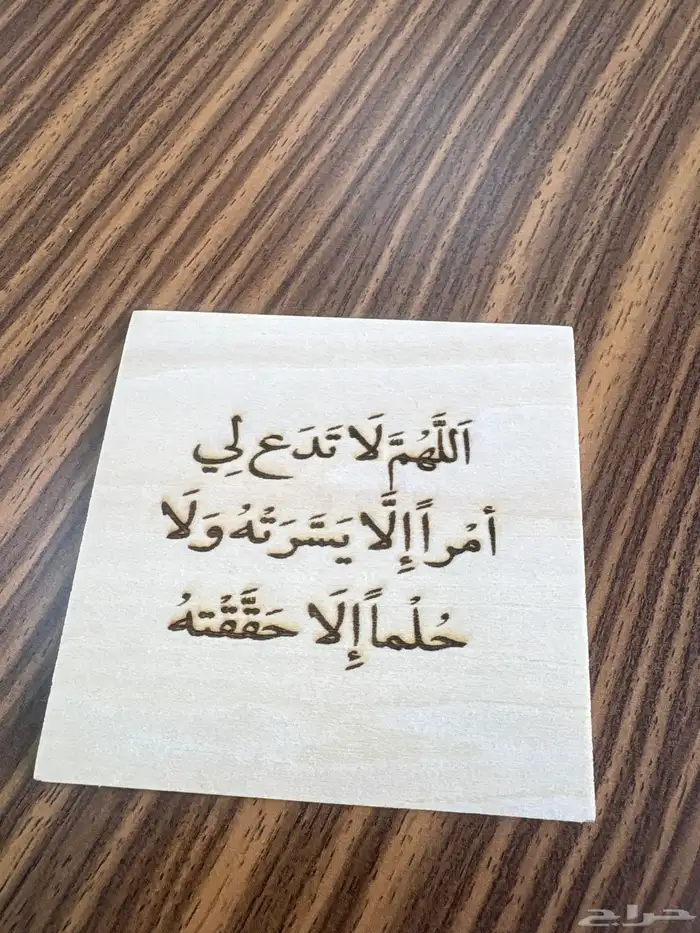 اَللَّهُمَّ لَا تَدَع لِي
أمْراً إِلَّا يَسَّرَتْهُ وَلَا
حُلْماً إِلَا حَقَّقْتهُ
حراج